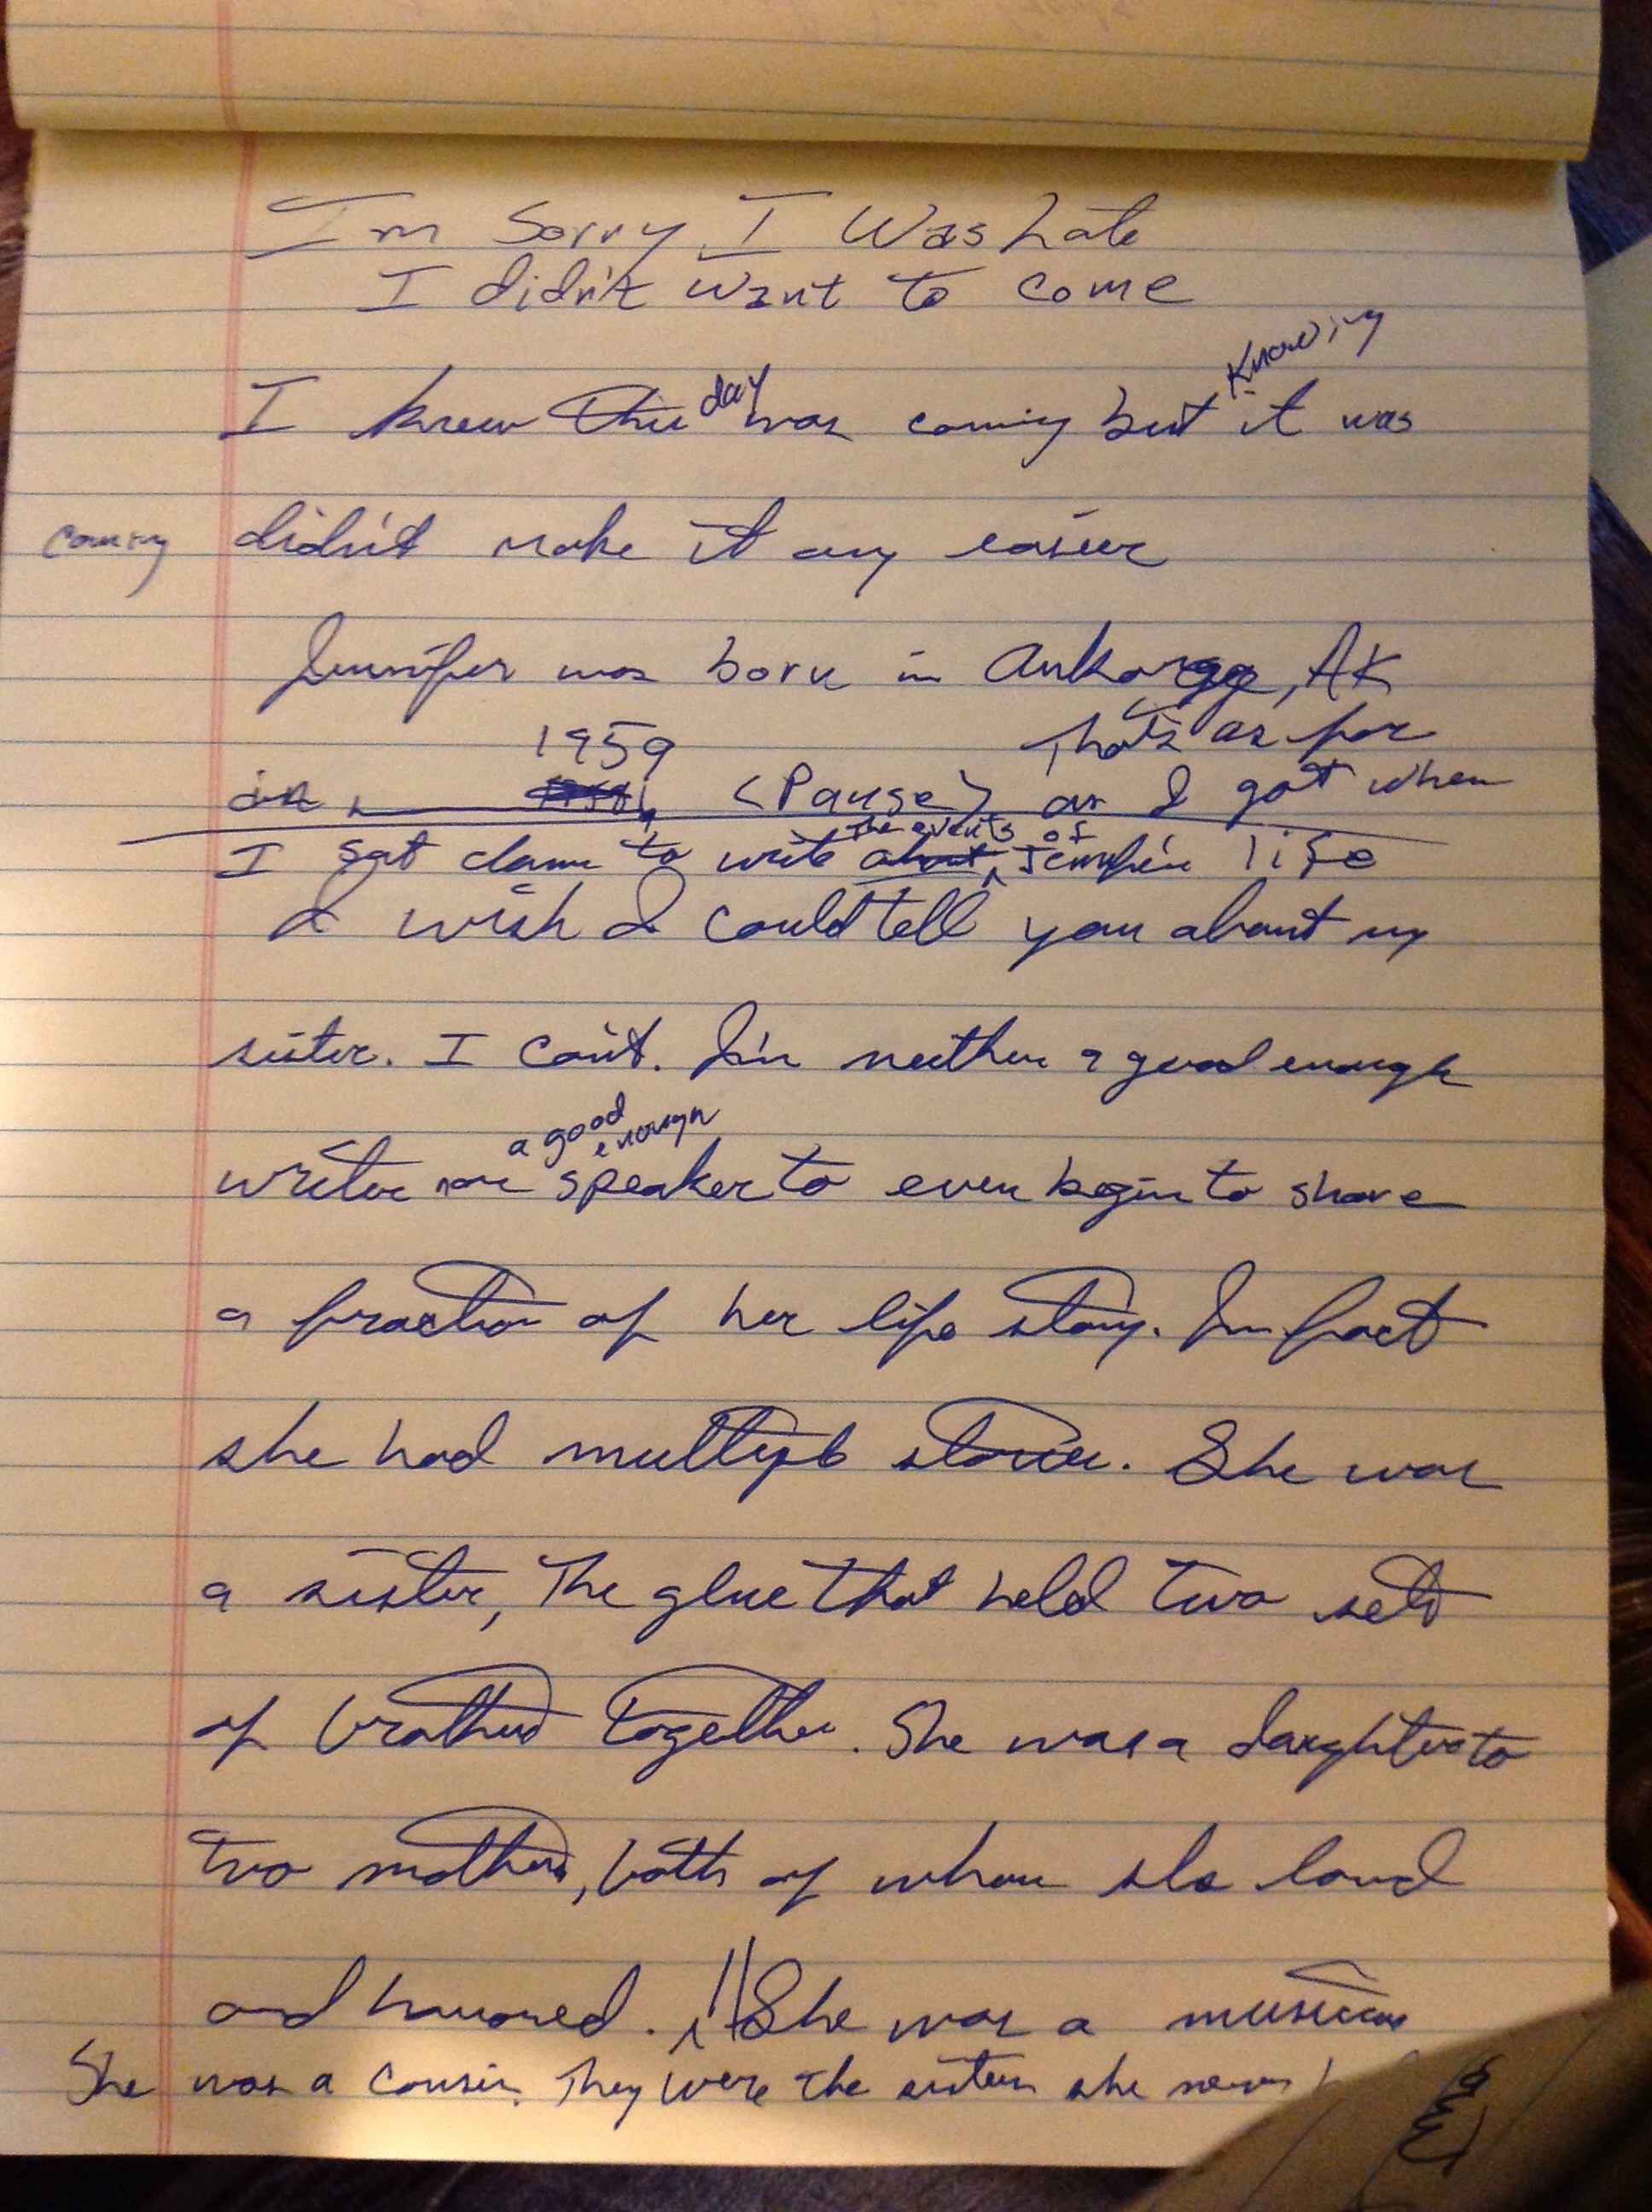 I'm Sorry, I Was Late
I didn't want to come
Knowing
I knew this day was coming but it was
coming didn't make it any easier
Jennifer was born in AK
1959 That's as far
in <Pause> as I got when
the events of
I sat down to write about life
I wish I could tell you about my
sister. I can't. I'm neither a good enough
a good enough
writer nor speaker to even begin to share
a fraction of her life story. In fact
she had multiple stories. She was
a sister, The glue that held two sets
of brothers together. She was a daughter to
two mothers, both of whom she loved
and honored. She was a musician
She was a cousin. They were the sisters she never